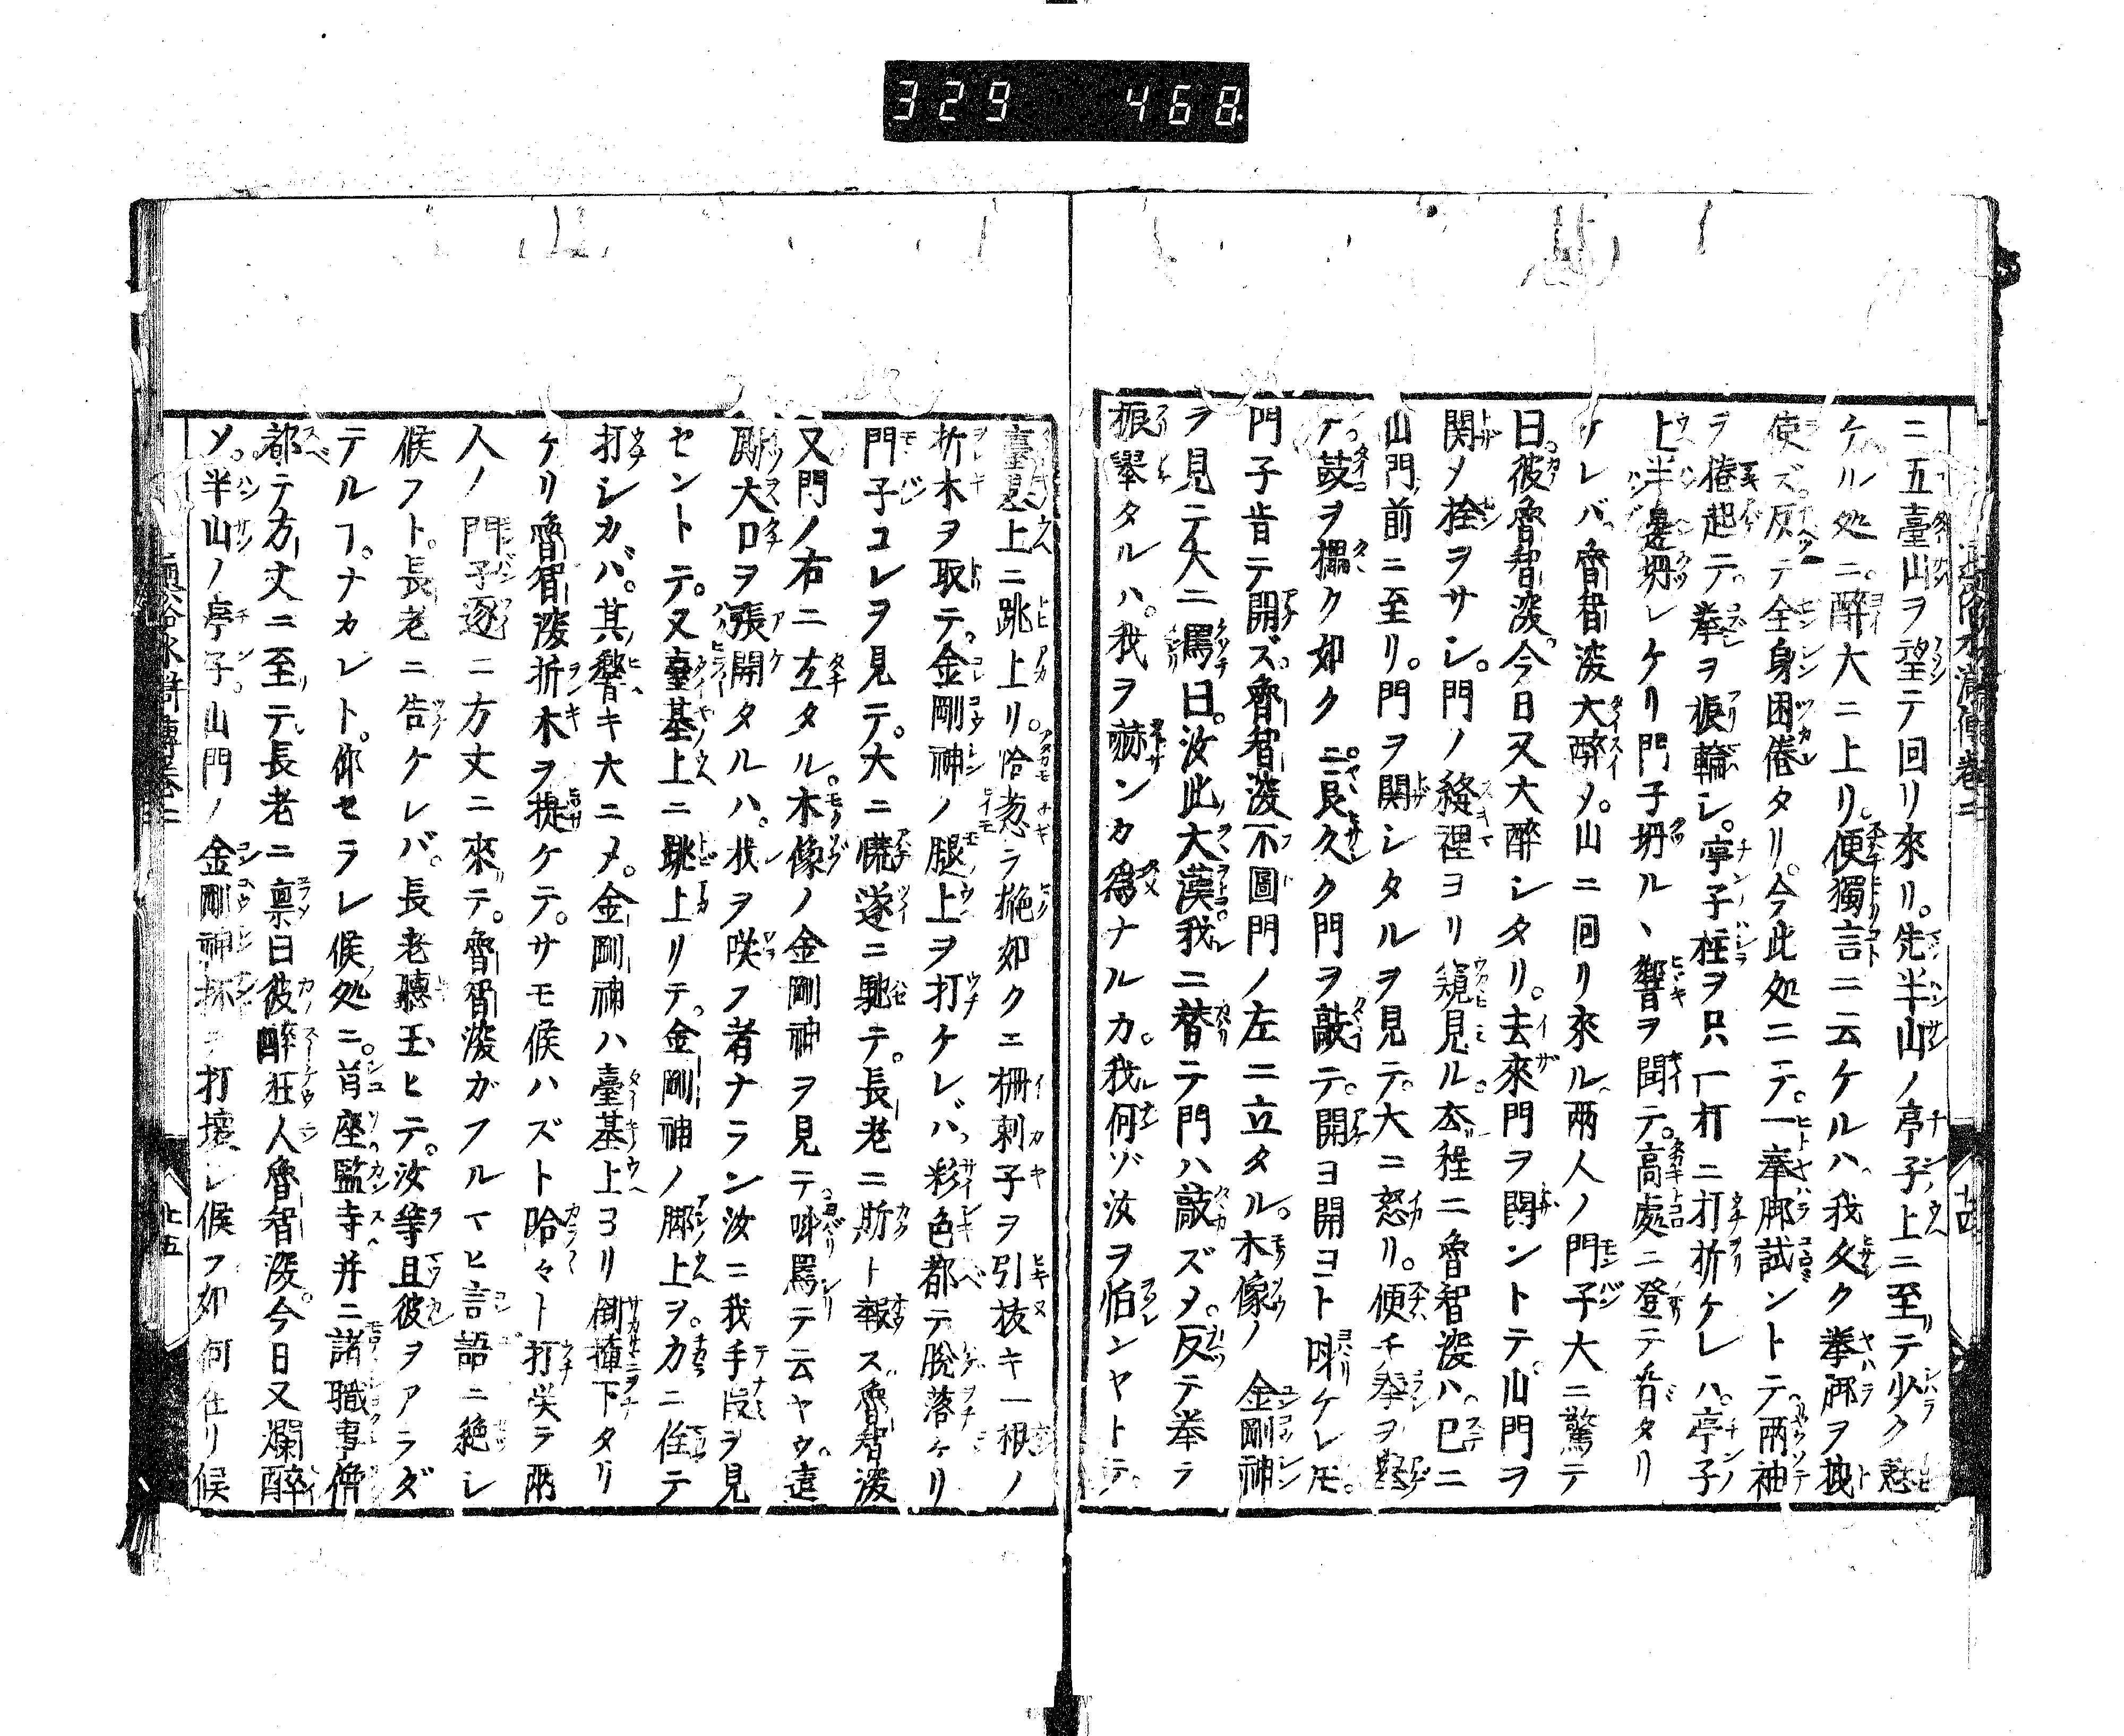 329 468
ニ五臺山ヲ望テ回リ來リ。先半山ノ亭子上ニ至テ少ク
ケル処ニ。醉大ニ上リ。便獨言ニ云ケルハ。我久ク拳脚ヲ
使ズ。反テ全身困倦タリ。今此処ニテ。一拳脚試ントテ。兩袖
ヲ捲起テ。拳ヲ振輪シ。亭子柱ヲ只一打ニ打折ケレハ。亭子
上半邊坍レケリ門子坍ル丶響ヲ聞テ。高處ニ登テ看タリ
ケレバ。魯智深大醉乄。山ニ回リ來ル。兩人ノ門子大ニ驚テ
曰。彼魯智深。今日又大醉シタリ。去來門ヲ関ントテ。山門ヲ
関メ栓ヲサシ。門ノ縫裡ヨリ窺見ル。玄程ニ魯智深ハ已ニ
山門前ニ至リ。門ヲ関シタルヲ見テ。大ニ怒リ。便チ拳ヲ
テ。鼓ヲ擂ク如ク ニ良久ク門ヲ敲テ。開ヨ開ヨト呌ケレ𪜈。
門子肯テ開ズ。魯智深不圖門ノ左ニ立タル。木像ノ 金剛神
ヲ見テ大ニ罵曰。汝此大漢我ニ替テ門ハ敲ズ乄。反テ拳ヲ
振擧タルハ。我ヲ赫ンカ爲ナルカ。我何ゾ汝ヲ怕ンヤトテ。
臺基上ニ跳上リ。恰葱ヲ撧如クニ柵剌子ヲ引抜キ一根ノ
折木ヲ取テ。金剛神ノ腿上ヲ打ケレバ。彩色都テ脫落ケリ
門子コレヲ見テ。大ニ慌遂ニ馳テ。長老ニ斯ト報ス魯智深
又門ノ右ニ立タル。木像ノ金剛神ヲ見テ呌罵テ云ヤウ。這
厮大口ヲ張開タルハ。我ヲ咲フ者ナラン汝ニ我手段ヲ見
セントテ。又臺基上ニ跳上リテ。金剛神ノ脚上ヲ。力ニ任テ
打シカバ。其響キ大ニ乄。金剛神ハ臺基上ヨリ倒撞下タリ
ケリ魯智深折木ヲ提ケテ。サモ候ハズト哈々ト打咲ラ兩
人ノ門子逐ニ方丈ニ來テ。魯智深ガフルマヒ言語ニ絶シ
候フト。長老ニ告ケレバ。長老聽玉ヒテ。汝等且彼ヲアラダ
テルヿ。ナカレト。仰セラレ候処ニ。首座監寺并ニ諸職事僧
都テ方丈ニ至テ長老ニ禀曰彼醉狂人魯智深。今日又爛醉
ソ。半山ノ亭子。山門ノ金剛神抔ヲ打壞レ候フ如何仕リ候